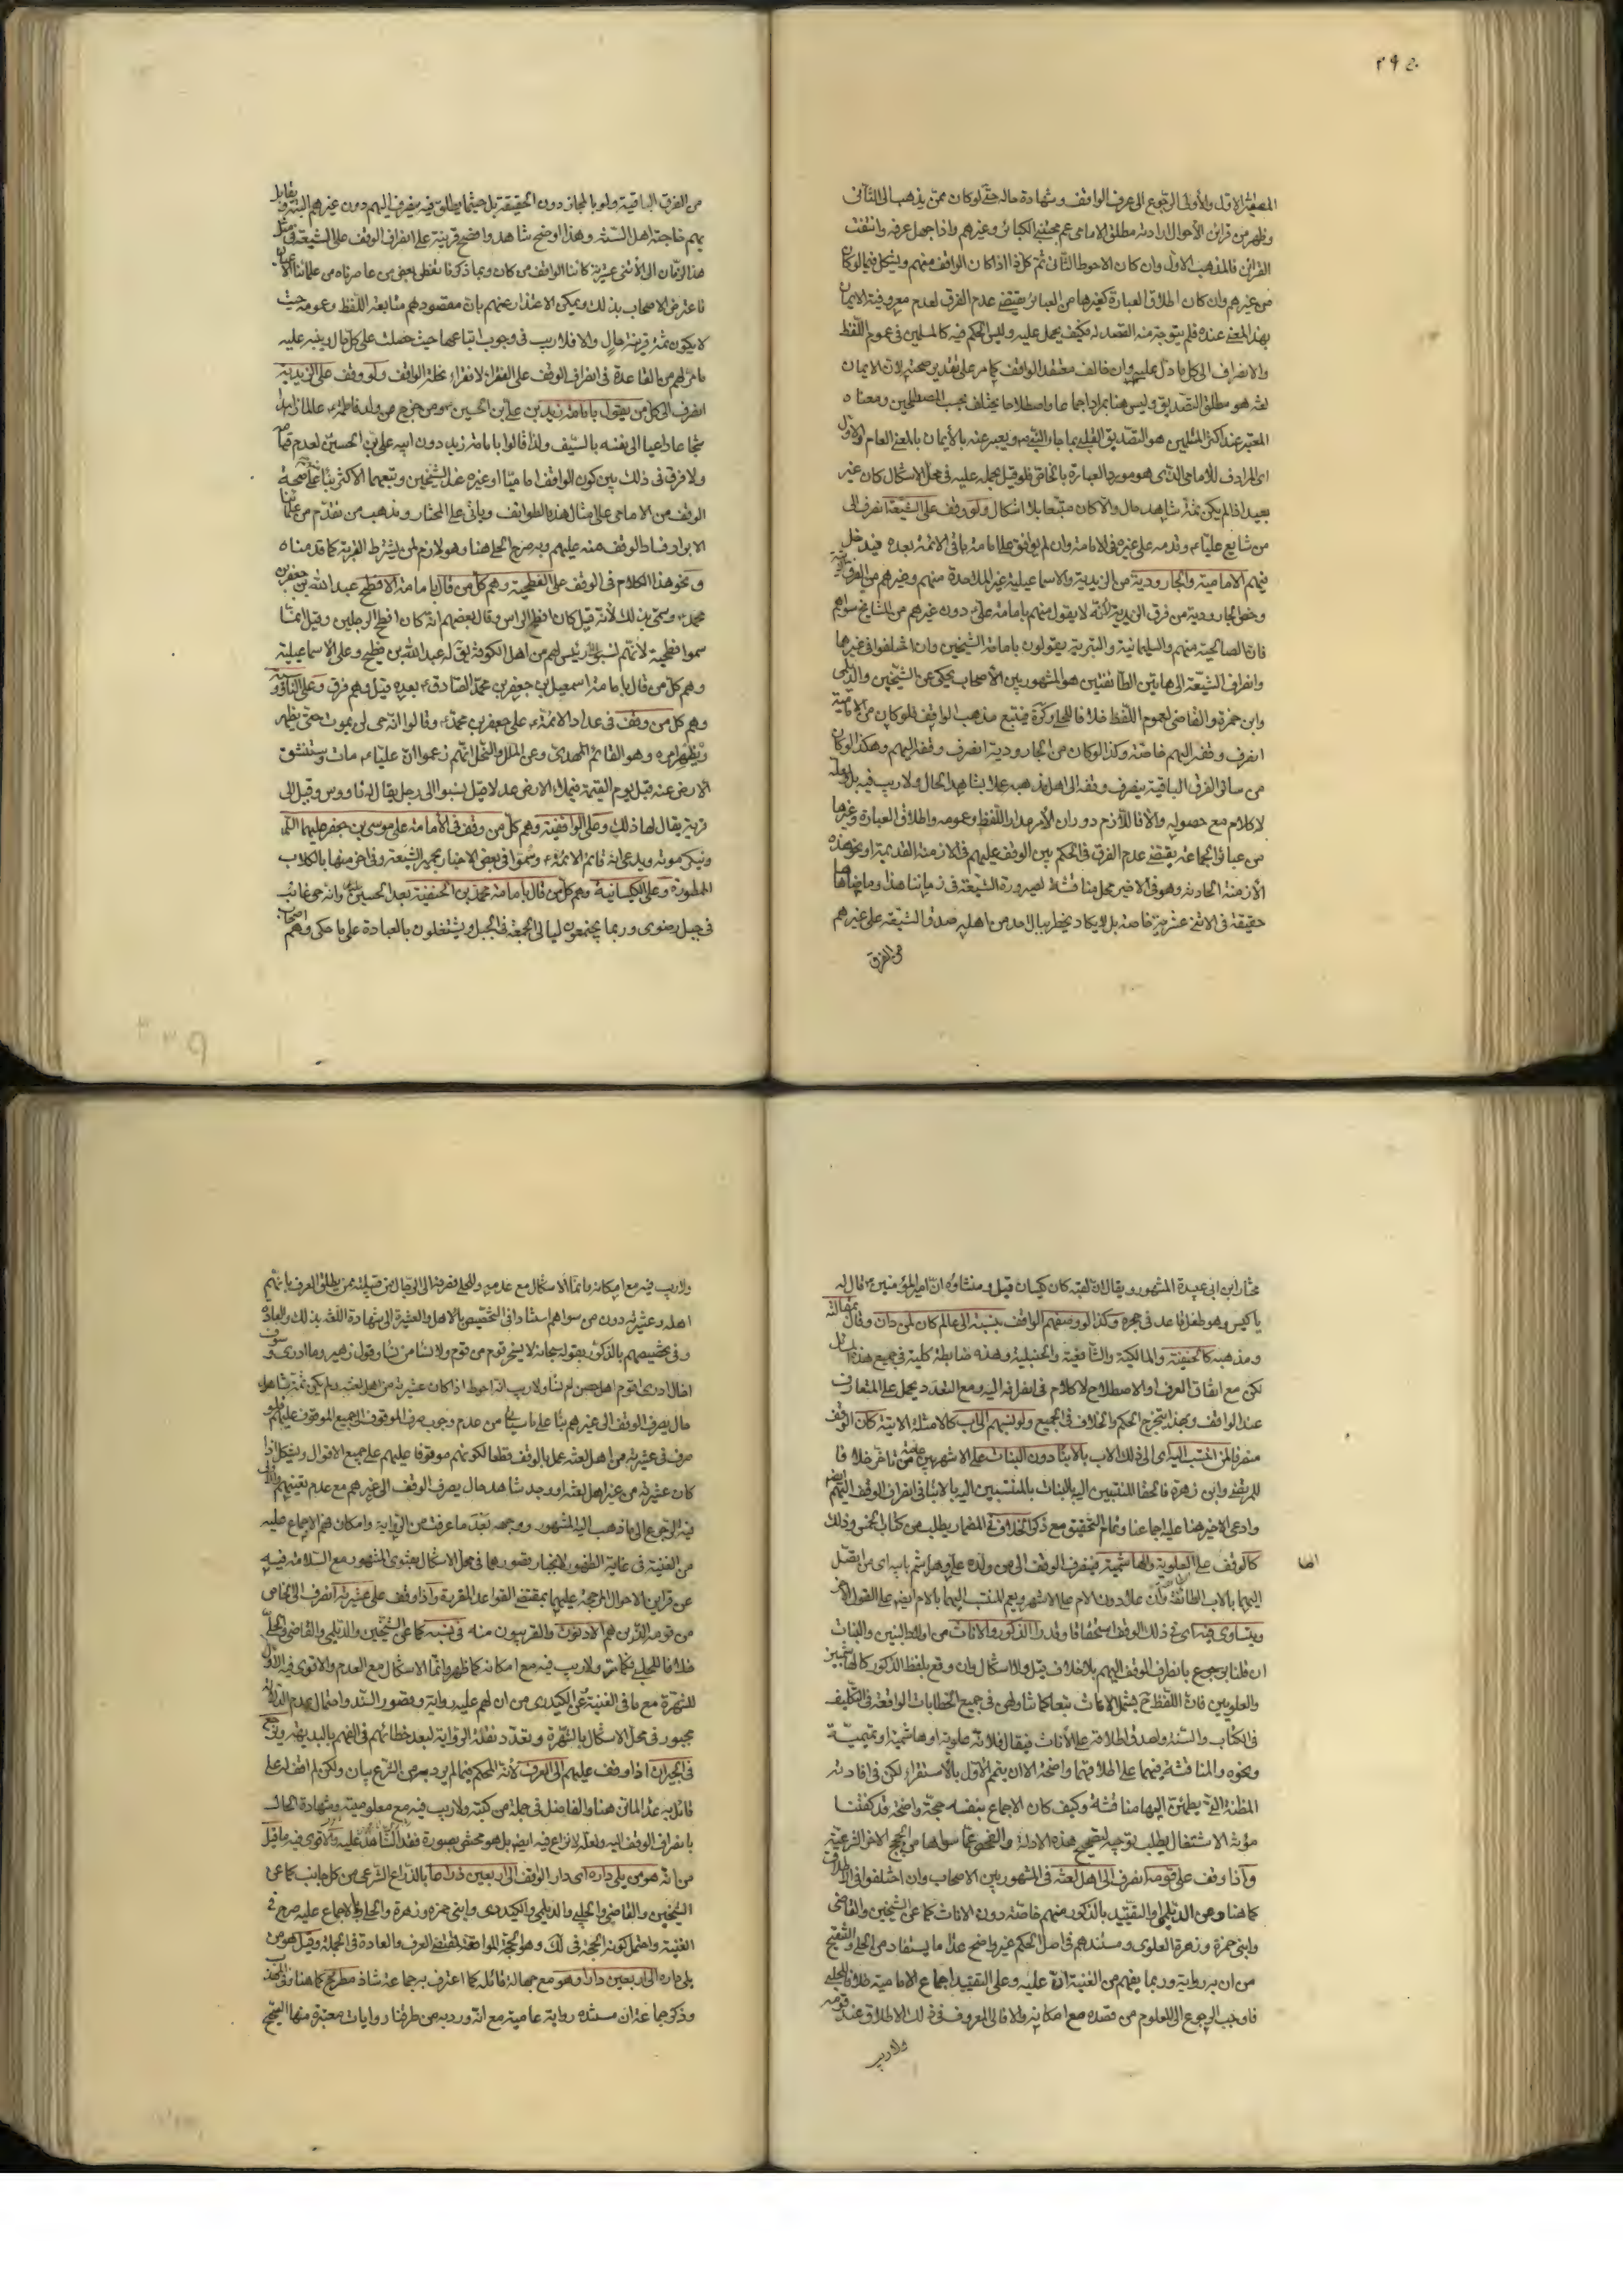 ٢٩٥
المصير الاول والأولى الرجوع الى عرف الواقف وشهادة حاله حتى لو كان ممن يذهب الى الثاني
وظهر من قراين الأحوال ارادته مطلق الامامي عم مجتنبي الكبائر وغيرهم واذا جهل عرفه وانتفت
القراين فالمذهب الاول وان كان الاحوط الثاني ثم كل ذا اذا كان الواقف منهم ويشكل فيما لو كان
من غيرهم وان كان اطلاق العبارة كغيرها من العبائر يقتضي عدم الفرق لعدم معروفية الايمان
بهذا المعنى عنده فلم يتوجه منه القصد اليه فكيف يحمل عليه وليس الحكم فيه كالمسلمين في عموم اللفظ
والانصراف الى كل ما دل عليه وان خالف معتقد الواقف كما مر على تقدير صحته لان الايمان
لغة هو مطلق التصديق وليس هنا بمراد اجماعا واصطلاحا يختلف بحسب المصطلحين ومعناه
المعتبر عند اكثر المسلمين هو التصديق القلبي بما جاء به النبي ويعبر عنه بالأيمان بالمعنى العام والاول
اي المرادف للأمامي الذي هو مورد العبارة بالخاص فلو قيل بحمله عليه في محل الاشكال كان غير
بعيد اذا لم يكن ثمة شاهد حال والا كان متبعا بلا اشكال ولو وقف على الشيعة انصرف الى
من شايع عليا ع وقدمه على غيره في الامامة وان لم يوافق على امامة باقي الائمة بعده فيدخل
فيهم الامامية والجارودية من الزيدية والاسماعيلية غير الملاحدة منهم وغيرهم من الفرق
وخص الجارودية من فرق الزيدية لانه لا يقول منهم بامامة علي ع دون غيرهم من المشايخ سواهم
فان الصالحية منهم والسليمانية والبترية يقولون بامامة الشيخين وان اختلفوا في غيرها
وانصراف الشيعة الى هاتين الطائفتين هو المشهور بين الأصحاب يحكى عن الشيخين والديلمي
وابن حمزة والقاضي لعموم اللفظ خلافا للحلي وكرة فيتبع مذهب الواقف فلو كان من الامامية
انصرف وقفه اليهم خاصة وكذا لو كان من الجارودية انصرف وقفه اليهم وهكذا لو كان
من سائر الفرق الباقية ينصرف وقفه الى اهل مذهبه عملا بشاهد الحال ولا ريب فيه بل ولعله
لا كلام مع حصوله والا فاللازم دوران الأمر مدار اللفظ وعمومه واطلاق العبارة وغيرها
من عبائر الجماعة يقتضي عدم الفرق في الحكم بين الوقف عليهم في الازمنة القديمة او نحو هذه
الأزمنة الحادثة وهو في الاخير محل مناقشة لصيرورة الشيعة في زماننا هذا وما ضاهاه
حقيقة في الاثني عشرية خاصة بل لا يكاد يخطر ببال احد من اهليه صدق الشيعة على غيرهم
من الفرق
من الفرق الباقية ولو بالمجاز دون الحقيقة بل حيثما يطلق فيه ينصرف اليهم دون غيرهم البتة ويقابل
بهم خاصة اهل السنة وهذا اوضح شاهد واضح قرينة على انصراف الوقف على الشيعة في مثل
هذا الزمان الى الأثني عشرية كائنا الواقف من كان وبما ذكرنا تفطن بعض من عاصرناه من علمائنا الأعيان
فاعترض الاصحاب بذلك ويمكن الاعتذار عنهم بان مقصودهم متابعة اللفظ وعمومه حيث
لا يكون ثمة قرينة حال والا فلا ريب في وجوب اتباعها حيث حصلت على كل حال
ما مر لهم من القاعدة في انصراف الوقف على الفقراء لا فقراء نحلة الواقف ولو وقف على الزيدية
انصرف الى كل من يقول بامامة زيد بن علي بن الحسين ومن خرج من ولد فاطمة ع عالما زاهدا
شجاعا داعيا الى نفسه بالسيف ولذا قالوا بامامة زيد دون ابيه علي بن الحسين لعدم قيامه
ولا فرق في ذلك بين كون الواقف اماميا او غيره عند الشيخين وتبعهما الاكثر بناء على صحة
الوقف من الامامي على امثال هذه الطوايف ويأتي على المختار ومذهب من تقدم من علمائنا
الابرار فساد الوقف منه عليهم وبه صرح الحلي هنا وهو لازم لمن يشترط القربة كما قدمناه
ونحو هذا الكلام في الوقف على الفطحية وهم كل من قال بامامة الافطح عبد الله بن جعفر بن
محمد ع وسمي بذلك لأنه قيل كان افطح الراس وقال بعضهم انه كان افطح الرجلين وقيل انما
سموا فطحية لأنهم نسبوا الى رئيس لهم من اهل الكوفة يق له عبد الله بن فطيح وعلى الاسماعيلية
وهم كل من قال بامامة اسمعيل بن جعفر بن محمد الصادق ع بعده قيل وهم فرق وعلى الناووسية
وهم كل من وقف في عداد الائمة ع على جعفر بن محمد ع وقالوا انه حي لن يموت حتى يظهر
ويظهر امره وهو القائم المهدي وعن الملل والنحل انهم زعموا ان عليا ع مات وستنشق
الارض عنه قبل يوم القيمة فيملأ الارض عدلا قيل نسبوا الى رجل يقال له ناووس وقيل الى
قرية يقال لها ذلك وعلى الواقفية وهم كل من وقف في الأمامة على موسى بن جعفر عليهما السلام
وينكر موته ويدعي انه قائم الائمة ع وسموا في بعض الاخبار بحمير الشيعة وفي اخر منها بالكلاب
الممطورة وعلى الكيسانية وهم كل من قال بامامة محمد بن الحنفية بعد الحسين وانه حي غائب
في جبل رضوى وربما يجتمعون ليالي الجمعة في الجبل ويشتغلون بالعبادة على ما حكي وهم اصحاب
مختار ابن ابي عبيدة المشهور ويقال ان لقبه كان كيسان قيل ومنشاؤه ان امير المؤمنين ع قال له
يا كيس وهو طفل قاعد في حجره وكذا لو وصفهم الواقف بنسبة الى عالم كان لمن دان وقال بمقالته
ومذهبه كالحنفية والمالكية والشافعية والحنبلية وهذه ضابطة كلية في جميع هذه المسائل
لكن مع اتفاق العرف او الاصطلاح لا كلام في انصرافه اليه ومع التعدد يحمل على المتعارف
عند الواقف وبهذا يتخرج الحكم والخلاف في الجميع ولو نسبهم الى اب كالامثلة الاتية كان الوقف
منصرفا لمن انتسب اليه اي الى ذلك الاب بالأبناء دون البنات على الاشهر بين عامة من تأخر خلافا
للمرتضى وابن زهرة فالحقا المنتسبين اليه بالبنات بالمنتسبين اليه بالابناء في انصراف الوقف اليهم ايضا
وادعى الاخير هنا عليه اجماعنا وتمام التحقيق مع ذكر الخلاف في المضمار يطلب من كتاب الخمس وذلك
كالوقف على العلوية والهاشمية فينصرف الوقف الى من ولده علي ع وهاشم بابه اي من اتصل
الها
اليهما بالاب الطائفة وان علا دون الام على الاشهر ويعم المنتسب اليهما بالام ايض على القول الاخر
ويتساوى فيه اي في ذلك الوقف استحقاقا وقدرا الذكور والاناث من اولاد البنين والبنات
ان قلنا برجوع بانصراف الوقف اليهم بلا خلاف قيل ولا اشكال وان وقع بلفظ الذكور كالهاشميين
والعلويين فان اللفظ ح يشمل الاناث تبعا كما تناولهن في جميع الخطابات الواقعة في التكليف
في الكتاب والسنة ولصدق اطلاقه على الأناث فيقال فلانة علوية او هاشمية او تميمية
ونحوه والمناقشة فيهما على اطلاقهما واضحة الا ان يتمم الاول بالاستقراء لكن في افادته
المظنة التي يطمئن اليها مناقشة وكيف كان الاجماع بنفسه حجة واضحة قد كفتنا
مؤنة الاشتغال بطلب توجيه لتصحيح هذه الادلة والتفحص عما سواها من الحجج الاخر الشرعية
واذا وقف على قومه انصرف الى اهل لغته في المشهور بين الاصحاب وان اختلفوا في الاطلاق
كما هنا وعن الديلمي او التقييد بالذكور منهم خاصة دون الاناث كما عن الشيخين والقاضي
وابني حمزة وزهرة العلوي ومستندهم في اصل الحكم غير واضح عدا ما يستفاد من الحلي والتنقيح
من ان به رواية وربما يفهم من الغنية ان عليه وعلى التقييد اجماع الامامية خلافا للحلي
فاوجب الرجوع الى المعلوم من قصده مع امكانه والا فالى المعروف في ذلك الاطلاق عند قومه
ولا ريب
ولا ريب فيه مع امكانه وانما الاشكال مع عدمه وللحلي فصرفه الى الرجال من قبيلته ممن يطلق العرف بانهم
اهله وعشيرته دون من سواهم استنادا في التخصيص بالاهل والعشيرة الى شهادة اللغة بذلك والعادة
وفي تخصيصهم بالذكور بقوله سبحانه لا يسخر قوم من قوم ولا نساء من نساء وقول زهير وما ادري وسوف
اخال ادري اقوم ال حصن ام نساء ولا ريب انه احوط اذا كان عشيرته من اهل لغته ولم يكن ثمة شاهد
حال بصرف الوقف الى غيرهم بناء على ما سيأتي من عدم وجوب صرف الموقوف الى جميع الموقوف عليهم فلو
صرف في عشيرته من اهل لغته عمل بالوقف قطعا لكونهم موقوفا عليهم على جميع الاقوال ويشكل اذا
كان عشيرته من غير اهل لغته او وجد شاهد حال بصرف الوقف الى غيرهم مع عدم تعينهم
فيه الرجوع الى ما ذهب اليه المشهور ووجهه بعد ما عرفت من الرواية وامكان فهم الاجماع عليه
من الغنية في غاية الظهور لانجبار قصورهما في محل الاشكال بفتوى المشهور مع السلامة فيه
عن قراين الاحوال المرجحة عليهما بمقتضى القواعد المقررة واذا وقف على عشيرته انصرف الى الخاص
من قومه الذين هم الادنون والقريبون منه في نسبه كما عن الشيخين والديلمي والقاضي والحلبي
خلافا للحلي فكما مر ولا ريب فيه مع امكانه كما ظهر وانما الاشكال مع العدم والاقوى فيه الاول
للشهرة مع ما في الغنية عن الكيدري من ان لهم عليه رواية وقصور السند واحتمال عدم الدلالة
مجبور في محل الاشكال بالشهرة وتعدد نقلة الرواية لبعد خطائهم في الفهم بالبديهة ويرجع
في الجيران اذا وقف عليهم الى العرف لانه المحكم فيما لم يرد به من الشرع بيان ولكن لم اقف له على
قائل به عدا الماتن هنا والفاضل في جملة من كتبه ولا ريب فيه مع معلوميته وشهادة الحال
بانصراف الوقف اليه ولعله لا نزاع فيه ايض بل هو مختص بصورة فقد الشاهد عليه والاقوى فيه ما قيل
من انه هو من يلي داره اي دار الواقف الى اربعين ذراعا بالذراع الشرعي من كل جانب كما عن
الشيخين والقاضي والحلبي والديلمي والكيدري وابني حمزة وزهرة والحلي والاجماع عليه صرح في
الغنية واحتمل كونه الحجة في ذلك وهو الحجة المواضعة لمقتضى العرف والعادة في الجملة وقيل هو من
يلي داره الى اربعين دارا وهو مع جهالة قائله كما اعترف به جماعة شاذ مطروح كما هنا وفي المهذب
وذكر جماعة ان مستنده رواية عامية مع انه ورد به من طرقنا روايات معتبرة منها الصحيح